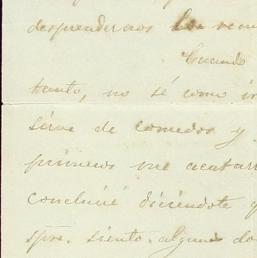 desprendernos los
Cuando
tanto, no sé como
sirve de comedor y
primeros me acatarr
concluiré diciéndote q
spre. siento algun do